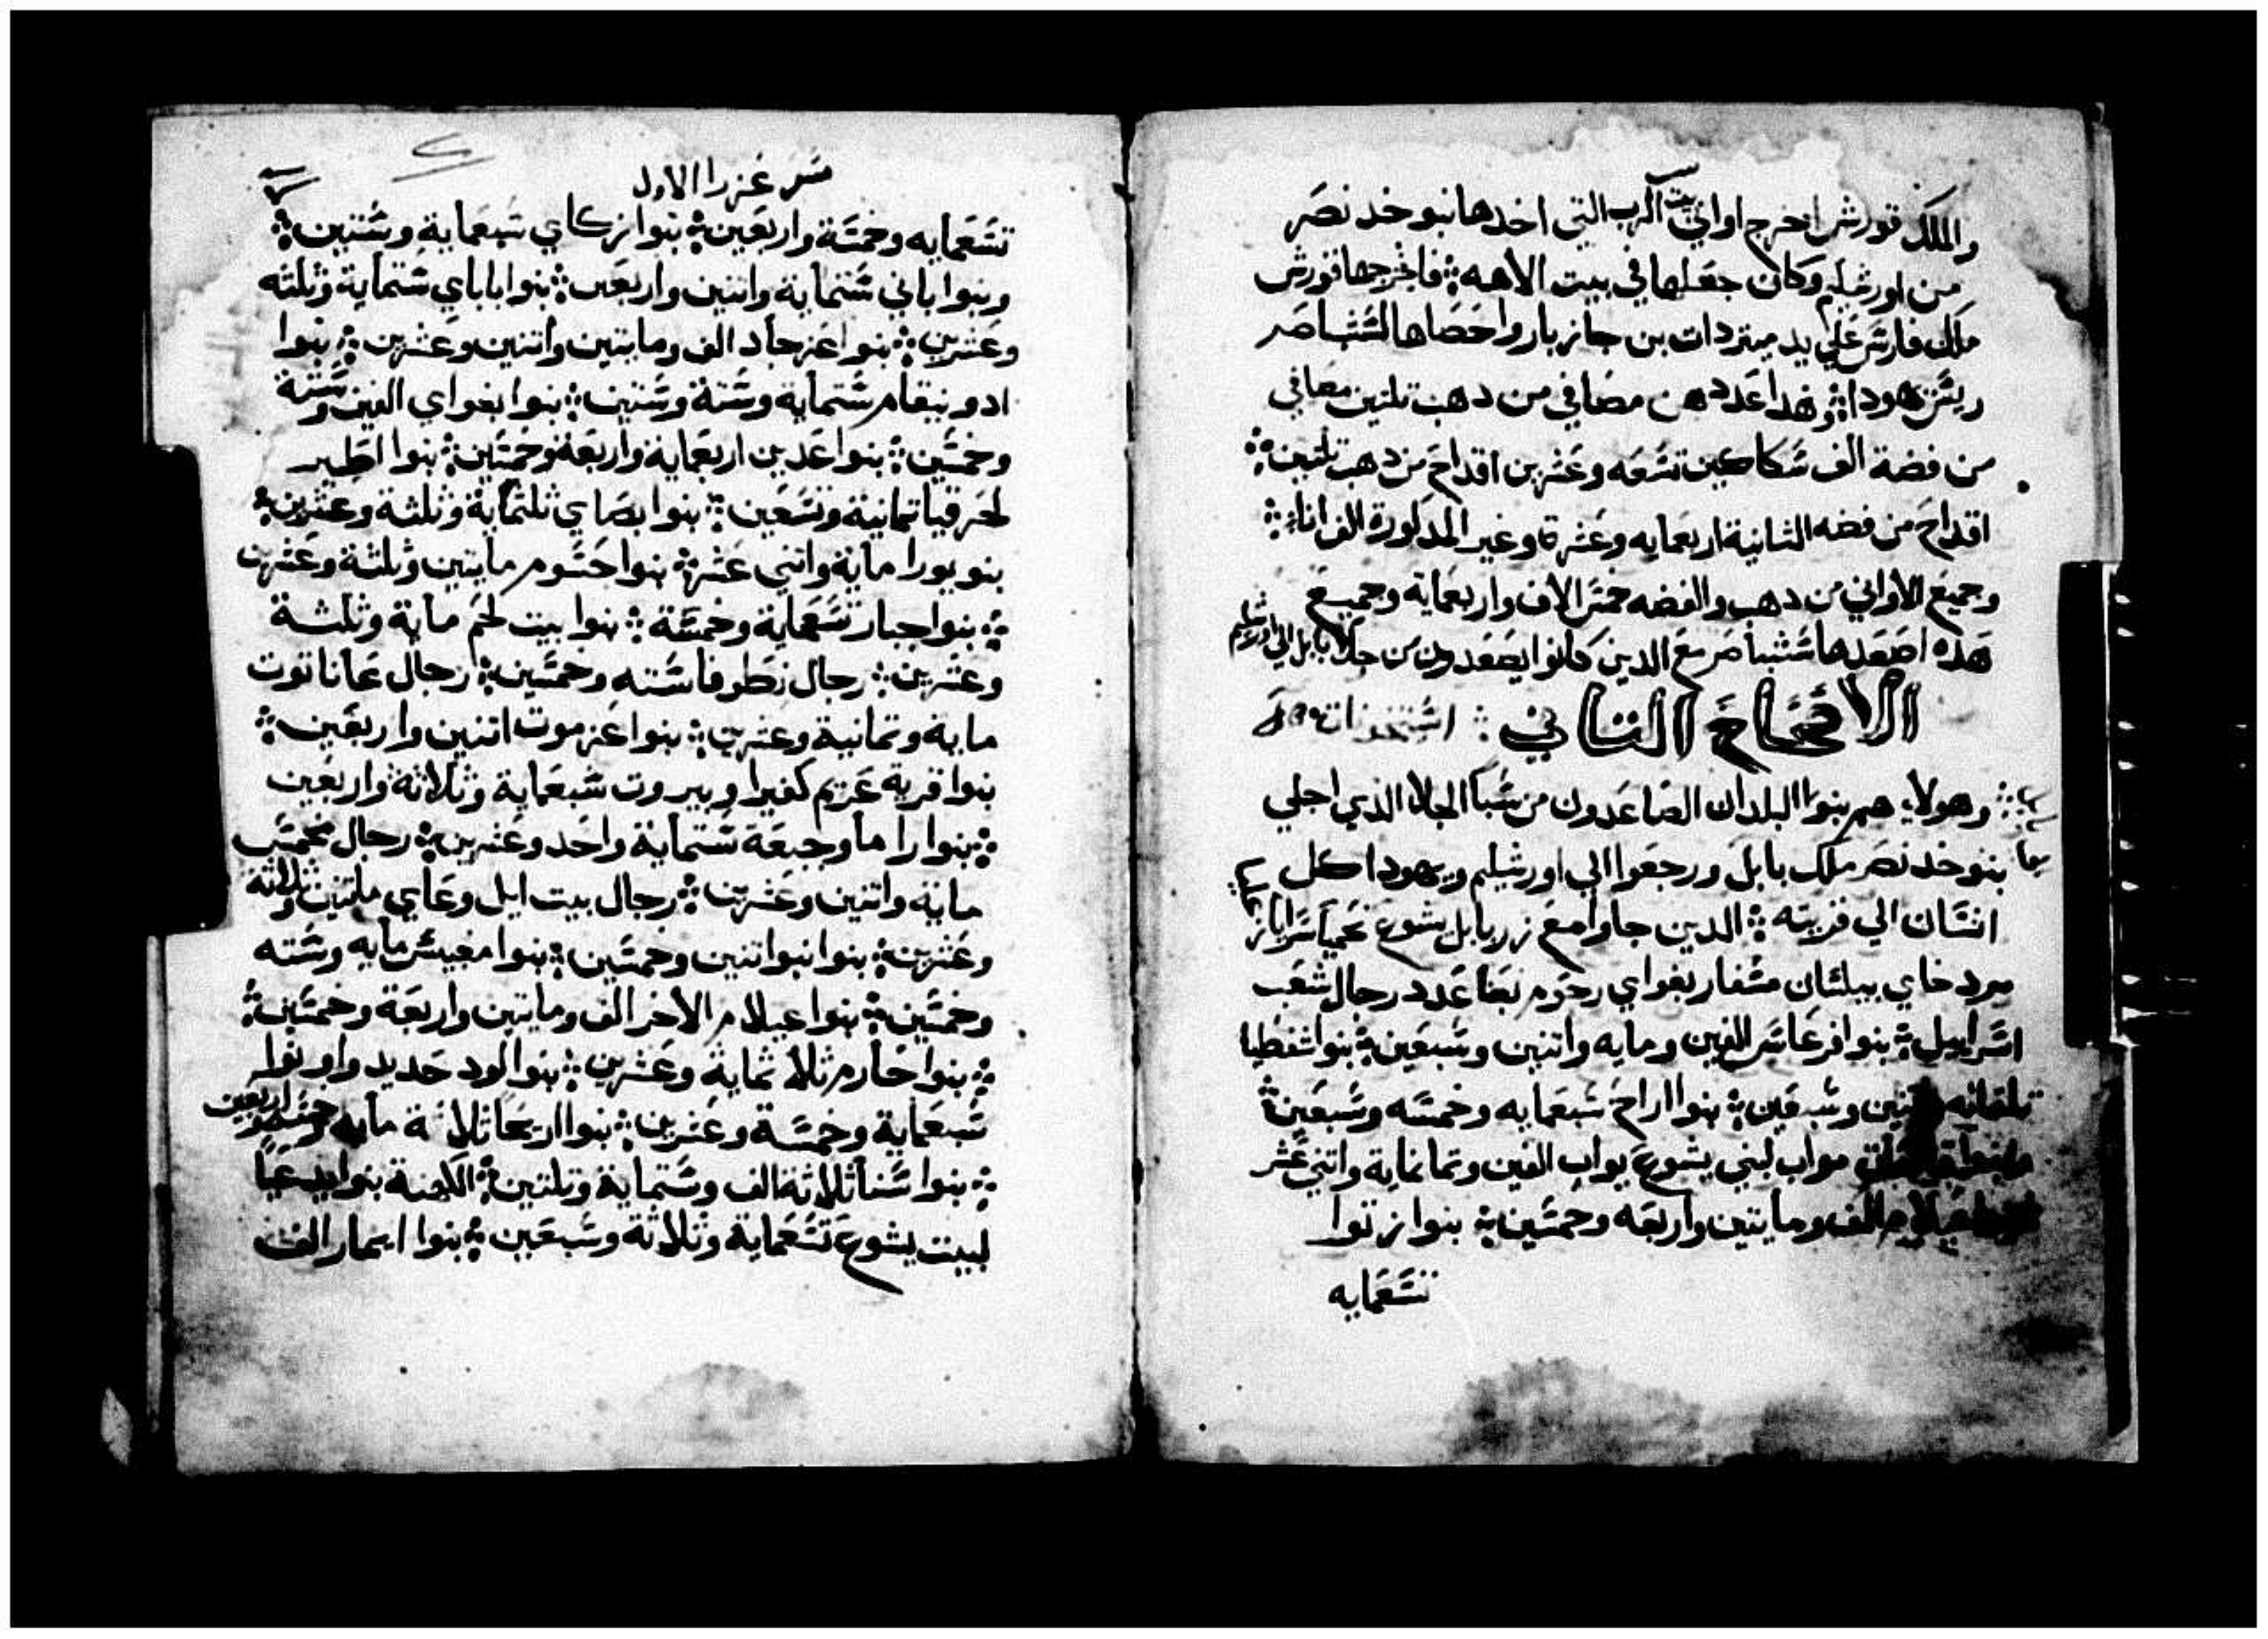 والملك قورش اخرج اواني بيت الرب التي اخدها نبوخد نصر
من اورشليم وكان جعلها في بيت الاهه فاخرجها قورش
ملك فارس علي يد ميتردات بن جازبار واحصاها لشتباصر
ريش يهودا وهدا عددهن مصافي من دهب تلتين مصافي
من فضة الف سكاكين تسعه وعشرين اقداح من دهب تلتين
اقداح من فضه الثانية اربعمايه وعشرة وغير المدكورة الف اناء
وجميع الاواني من دهب والفضه خمس الاف واربعماية وجميع
هده اصعدها شتباصر مع الدين كانوا يصعدون من جلا بابل الي اورشليم
الاصحاح التاني
وهولاء هم بنوا البلدان الصاعدون من سبا الجلا الذي اجلي
بنوخد نصر ملك بابل ورجعوا الي اورشليم ويهودا كل
انسان الي قريته الدين جاوا مع زربابل يشوع نحميا
مردخاي بيلشان مسفار بغواي رحوم بعنا عدد رجال شعب
اسراييل بنوا فرعاس الفين ومايه واتنين وسبعين بنوا شفطيا
وسبعين بنوا اراح سبعمايه وخمسه وسبعين
مواب لبني يشوع يواب الفين وتمانماية واتني عشر
عيلام الف ومايتين واربعه وخمسين بنوا زتوا
تسعمايه
سفر عزرا الاول
تسعمايه وخمسة واربعين بنوا زكاي سبعماية وستين
وبنوا باني ستماية واتنين واربعين بنوا باباي ستماية وثلثه
وعشرين بنوا عزجاد الف ومايتين واتنين وعشرين بنوا
ادونيقام ستماية وستة وستين بنوا بغواي الفين وستة
وخمسين بنوا عدين اربعماية واربعة وخمسين بنوا اطير
لحزقيا تمانية وتسعين بنوا بصاي ثلتماية وثلثة وعشرين
بنو يورا ماية واتني عشر بنوا حشوم مايتين وثلثة وعشرين
بنوا جبار تسعماية وخمسة بنوا بيت لحم ماية وثلثة
وعشرين رجال نطوفا سته وخمسين رجال عاناتوت
ماية وتمانية وعشرين بنوا عزموت اتنين واربعين
بنوا قرية عريم كفيرا وبيروت سبعماية وثلاثة واربعين
بنوا راما وجبعة ستماية واحد وعشرين رجال مخمس
ماية واتنين وعشرين رجال بيت ايل وعاي مايتين وثلاثة
وعشرين بنوا نبوا تنين وخمسين بنوا مغبيش مايه وسته
وخمسين بنوا عيلام الاخر الف ومايتين واربعة وخمسين
بنوا حارم ثلاثماية وعشرين بنوا لود حديد واونوا
سبعماية وخمسة وعشرين بنوا اريحا ثلاثة مايه وخمسه واربعين
بنوا سنا ثلاثة الف وستماية وتلتين الكهنة بنوا يدعيا
لبيت يشوع تسعماية وثلاثة وسبعين بنوا ايمار الف